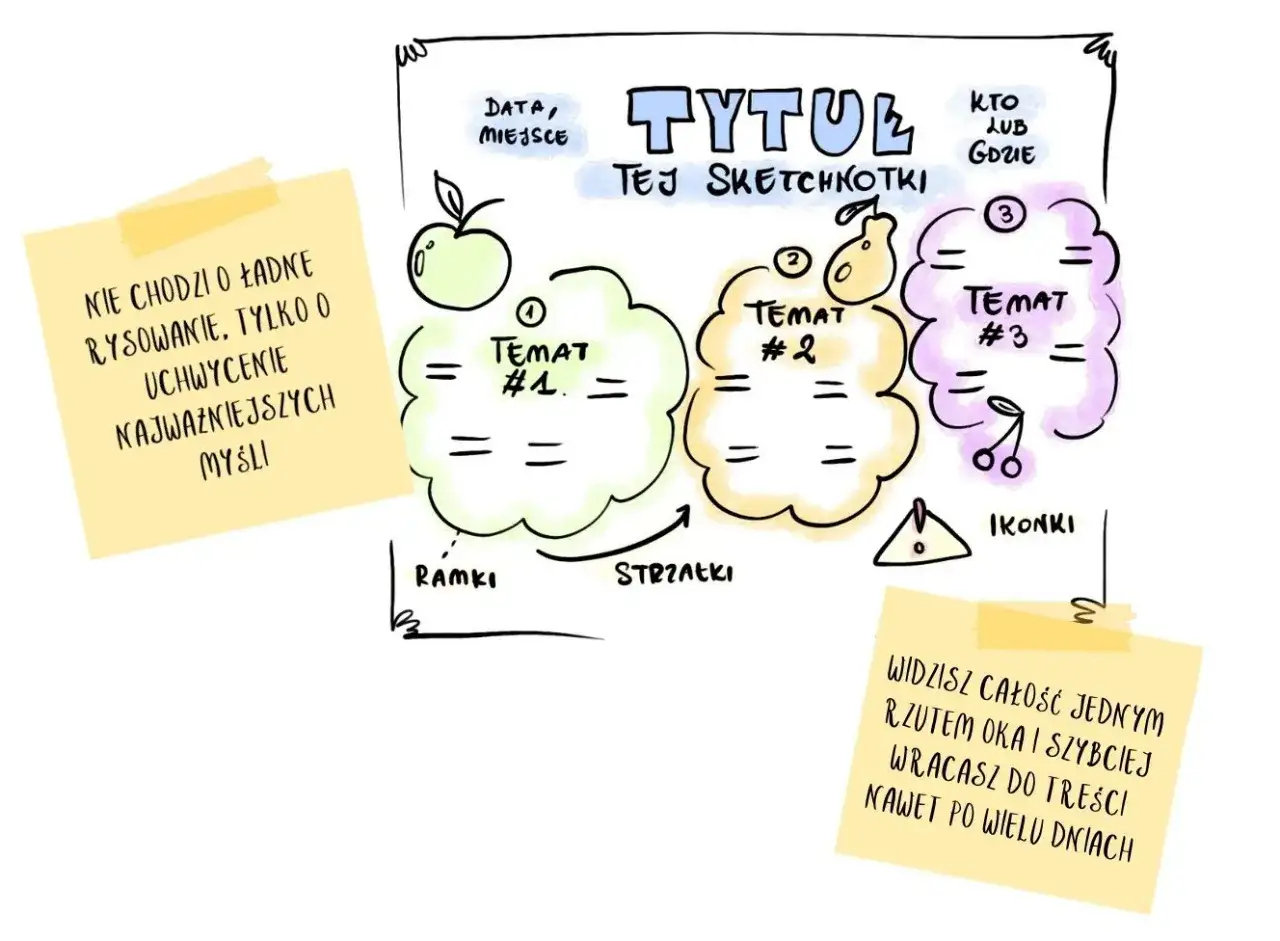 DATA,
MIEJSCE
TYTUŁ
TEJ SKETCHNOTKI
KTO
LUB
GDZIE
NIE CHODZI O ŁADNE
RYSOWANIE, TYLKO O
UCHWYCENIE
NAJWAŻNIEJSZYCH
MYŚLI
1
TEMAT
#1.
2
TEMAT
#2
3
TEMAT
#3
RAMKI
STRZAŁKI
IKONKI
WIDZISZ CAŁOŚĆ JEDNYM
RZUTEM OKA I SZYBCIEJ
WRACASZ DO TREŚCI
NAWET PO WIELU DNIACH